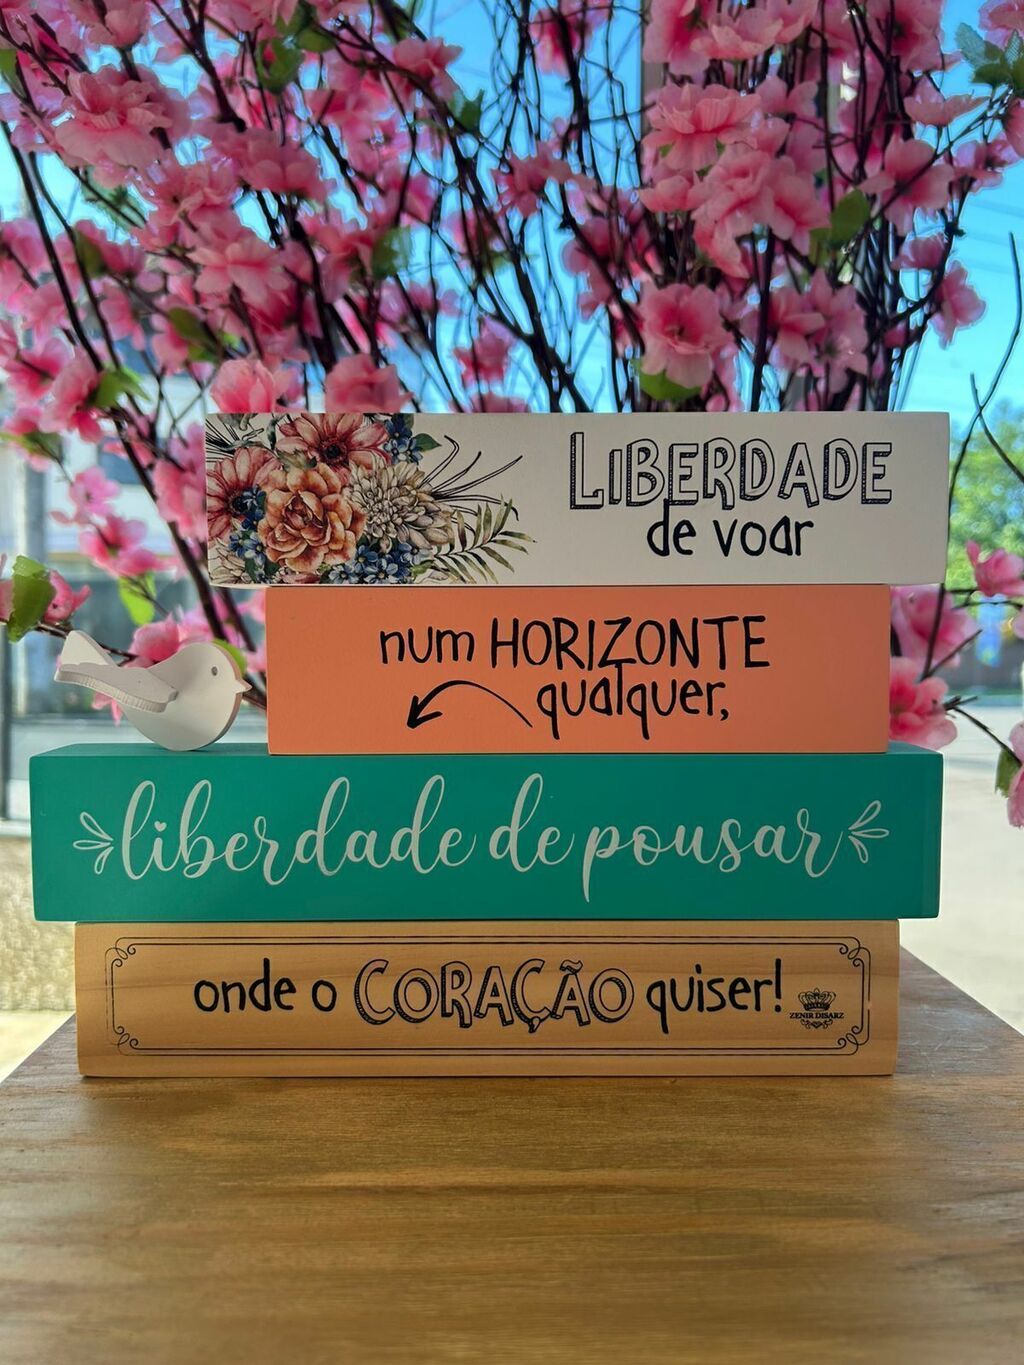 LIBERDADE
de voar
num HORIZONTE
qualquer,
liberdade de pousar
onde o CORAÇÃO quiser!
ZENIR DISARZ